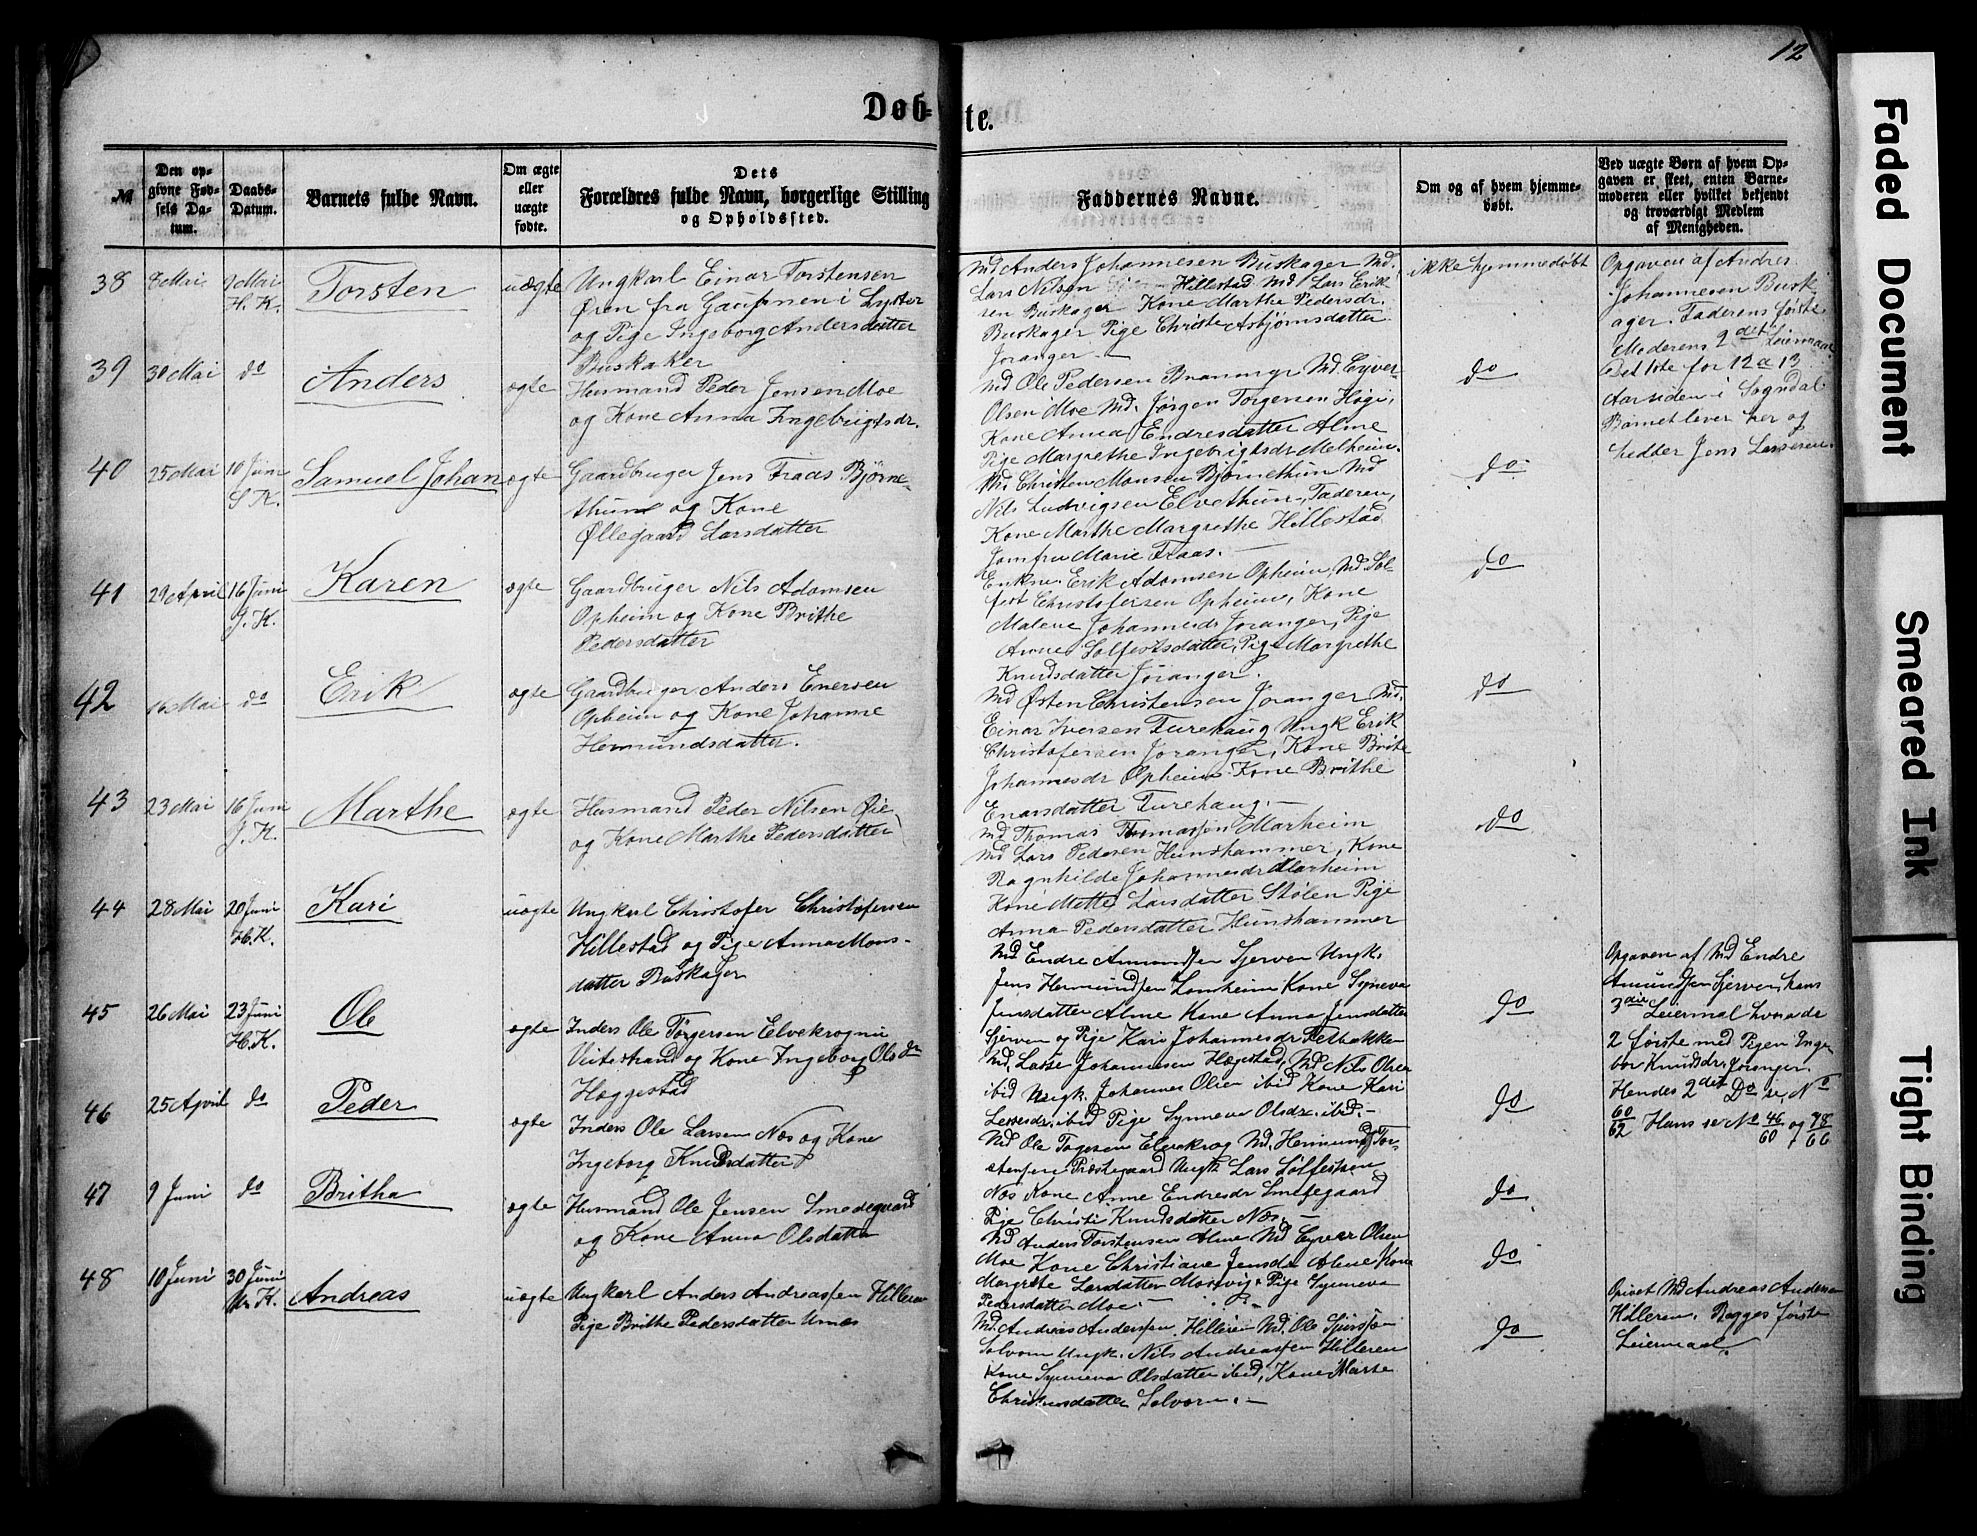 12
Døb-
te.
№
Den op-
givne Fød-
sels Da-
tum.
Daabs-
Datum.
Barnets fulde Navn.
Om ægte
eller
uægte
fødte.
Dets
Forældres fulde Navn, borgerlige Stilling
og Opholdssted.
Faddernes Navne.
Om og af hvem hjemme-
døbt.
Ved uægte Børn af hvem Op-
gaven er skeet, enten Barne-
moderen eller hvilket bekjendt
og troværdigt Medlem
af Menigheden.
38 8 Mai 9 Mai
H. K.
Torsten
uægte
Ungkarl Einar Torstensen
Øren fra Gaupnen i Lyster
og Pige Ingeborg Andersdatter
Buskaker
Md Anders Johannesen Buskager Md.
Lars Nilsen Hillestad Md Lars Erik
sen Buskager Kone Marthe Pedersdr.
Buskager Pige Christe Asbjørnsdatter
Joranger.—
ikke hjemmedøbt
Opgaven af Andres
Johannesen Busk
ager. Faderens første
Moderens 2det Leiermaal
Det 1ste for 12 a 13
Aar siden i Sogndal
Barnet lever her og
hedder Jens Larsen
39 30 Mai do
Anders
ægte
Husmand Peder Jensen Moe
og Kone Anna Ingebrigtsdr.
Md Ole Pedersen Md. Eyver
Olsen Moe Md. Jørgen Torgersen Høgi,
Kone Anna Endresdatter Alme
Pige Margrethe Ingebrigtsdr Melheim.
do
40 25 Mai 10 Juni
S. K.
Samuel Johan
ægte
Gaardbruger Jens Fraas Bjørne-
thun og Kone
Øllegaard Larsdatter
Md. Christen Monsen Bjørnethun Md
Nils Ludvigsen Elvethun, Faderen,
Kone Marthe Margrethe Hillestad
Jomfru Marie Fraas.—
do
41 29 April 16 Juni
J. K.
Karen
ægte
Gaardbruger Nils Adamsen
Opheim og Kone Brithe
Pedersdatter
Enkm. Erik Adamsen Opheim, Md. Sol-
fest Christofersen Opheim, Kone
Malene Johannesdr Joranger, Pige
Anne Solfestsdatter, Pige Margrethe
Knudsdatter Joranger.
do
42 16 Mai do
Erik
ægte
Gaardbruger Anders Enersen
Opheim og Kone Johanne
Hermundsdatter.
Md Østen Christensen Joranger Md.
Einar Iversen Turehaug Ungk Erik
Christofersen Joranger, Kone Brite
Johannesdr Opheim Kone Brithe
Enarsdatter Turehaug.—
do
43 23 Mai 16 Juni
J. K.
Marthe
ægte
Husmand Peder Nilsen Øie
og Kone Marthe Pedersdatter
Md Thomas Thomassen Marheim
Md Lars Pedersen Hunshammer, Kone
Ragnhilde Johannesdr Marheim
Kone Mette Larsdatter Stølen Pige
Anna Pedersdatter Hunshammer
do
44 28 Mai 20 Juni
H. K.
Kari
uægte
Ungkarl Christofer Christofersen
Hillestad og Pige Anna Mons-
datter Buskager
Md Endre Amundsen Sjerven Ungk.
Jens Hermundsen Lomheim Kone Syneva
Jensdatter Alme Kone Anna Jensdatter
Sjerven og Pige Kari Johannesdr
do
Opgaven af Md Endre
Amundsen Sjerven, hans
3die Leiermal hvoraf de
2 første med Pigen Inge
bor Knudsdr. Joranger.
Hendes 2det Do se No
60/62 Hans se No 46/60 og 78/66
45 26 Mai 23 Juni
H. K.
Ole
ægte
Inders Ole Torgersen Elvekrognu
Veitestrand og Kone Ingeborg Olsdr
Hæggestad
Md. Lasse Johannesen Hægestad, Md Nils Olsen
ibid Ungk. Johannes Olsen ibid Kone Kari
Lassesdr. ibid Pige Synneva Olsdr. ibid.—
do
46 25 April do
Peder
ægte
Inders Ole Larsen Næs og Kone
Ingeborg Knudsdatter
Md Ole Togesen Elvekrog Md. Hermund Tor-
stensen Præstegaard Ungk Lars Solfestsen
Næs Kone Anne Endresdr Smedegaard
Pige Christi Knudsdatter Næs.—
do
47 9 Juni do
Britha
ægte
Husmand Ole Jensen Smedegaard
og Kone Anna Olsdatter
Md Anders Torstensen Alme Md Eyver Olsen
Moe Kone Christiane Jensdr Alme Kone
Margrete Larsdatter Pige Synneva
Pedersdatter Moe.—
do
48 10 Juni 30 Juni
Ur. K.
Andreas
uægte
Ungkarl Anders Andreassen Hilleren
Pige Brithe Pedersdatter Urnes
Md. Andreas Anderssen Hilleren Md. Ole Sjursson
Solvorn Ungk. Nils Andreassen Hilleren
Kone Synneva Olsdatter ibid, Kone Marte
Christensdatter Solvorn.—
do
do
Opivet Md Andreas Andersen
Hilleren. Begges første
Leiermaal.
Faded Document
Smeared Ink
Tight Binding